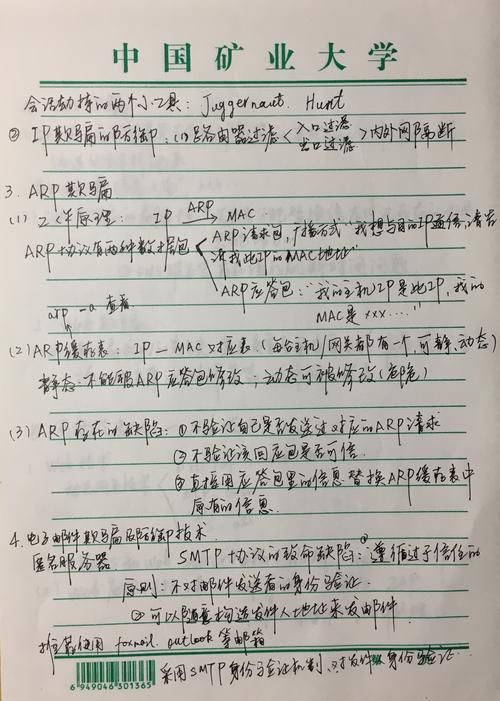 中国矿业大学
会话劫持的两个小工具：Juggernaut. Hunt
② IP欺骗的防御：(1)路由器过滤〈入口过滤 出口过滤〉内外网隔断
3. ARP欺骗
(1) 工作原理：IP ARP→ MAC
ARP协议有两种数据包
ARP请求包，广播方式"我想与目的IP通信，请告
诉我此IP的MAC地址"
ARP应答包："我的主机IP是此IP，我的
MAC是 xxx ……"
arp -a 查看
(2) ARP缓存表：IP—MAC对应表（每台主机/网关都有一个，可静、动态）
静态：不能被ARP应答包修改；动态可被修改（危险）
(3) ARP存在的缺陷：①不验证自己是否发送过对应的ARP请求
②不验证该回应包是否可信.
③直接用应答包里的信息替换ARP缓存表中
原有的信息.
4. 电子邮件欺骗及防御技术.
匿名服务器
SMTP协议的致命缺陷：①遵循过于信任的
原则：不对邮件发送者的身份验证.
②可以随意构造发件人地址来发邮件.
推荐使用 foxmail. outlook 等邮箱
采用SMTP身份验证机制，对发件 身份验证.
6949046301365